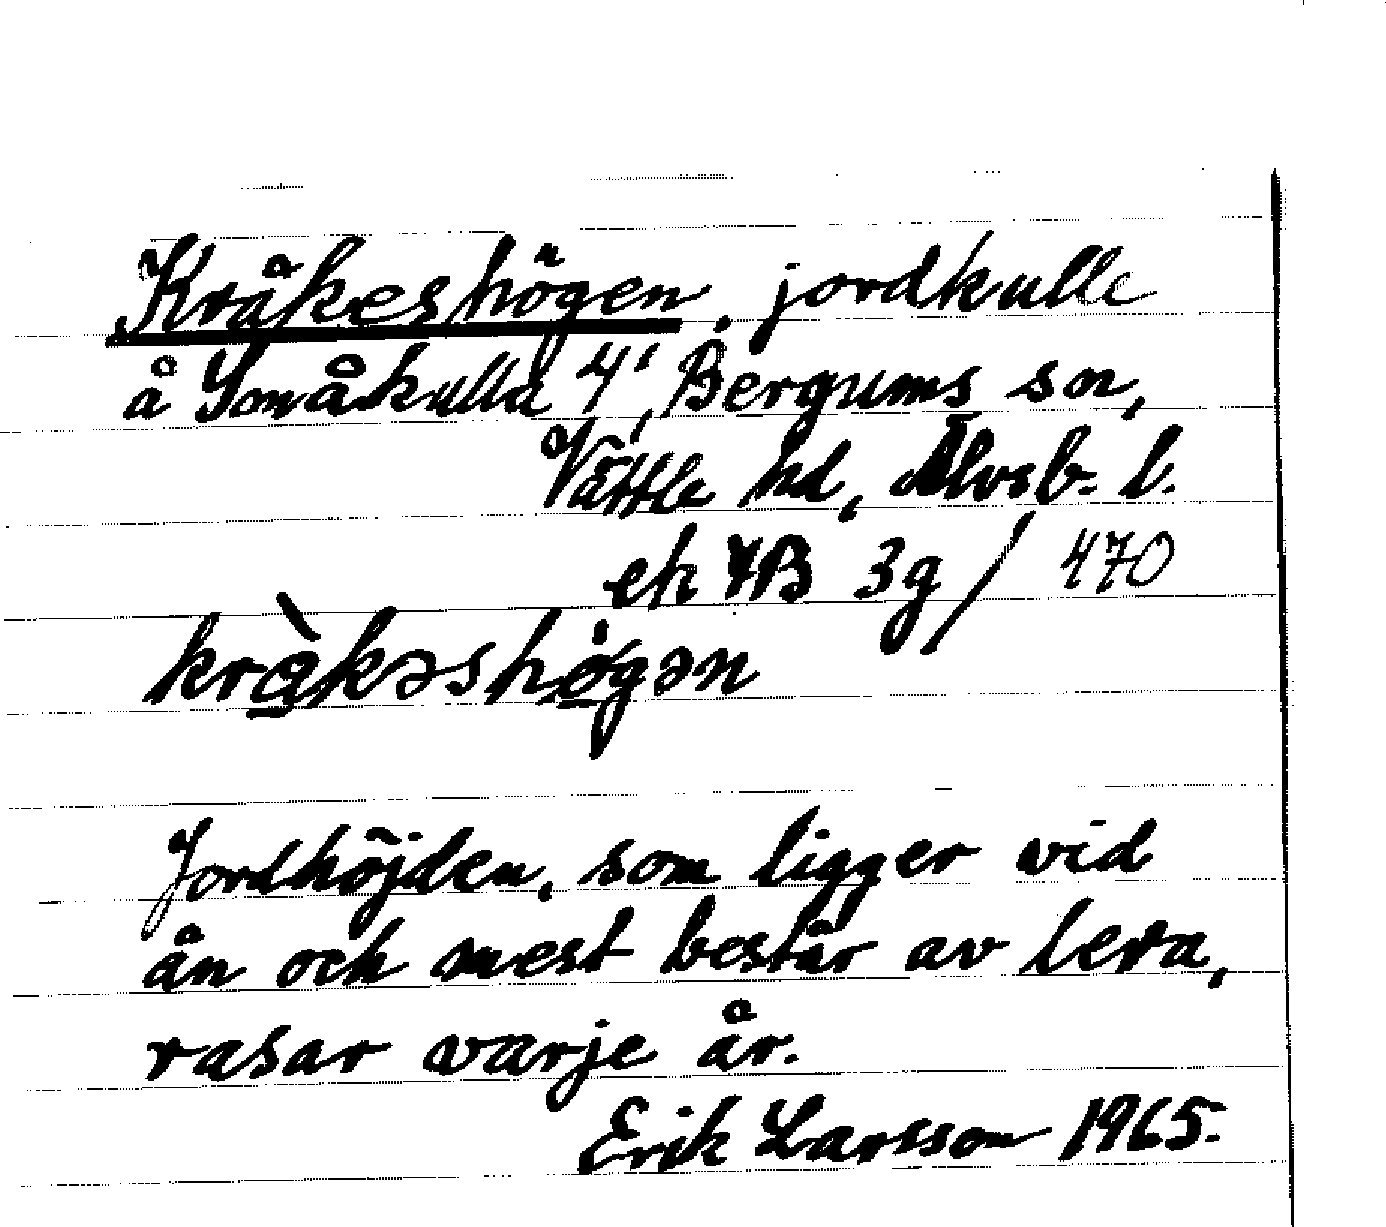 Kråkeshögen, jordkulle
å Småkulla 4¹, Bergums sn,
Vättle hd, Älvsb. l.
ek 7B 3g / 470
kråkəshögən
Jordhöjden, som ligger vid
ån och mest består av lera,
rasar varje år.
Erik Larsson 1965.